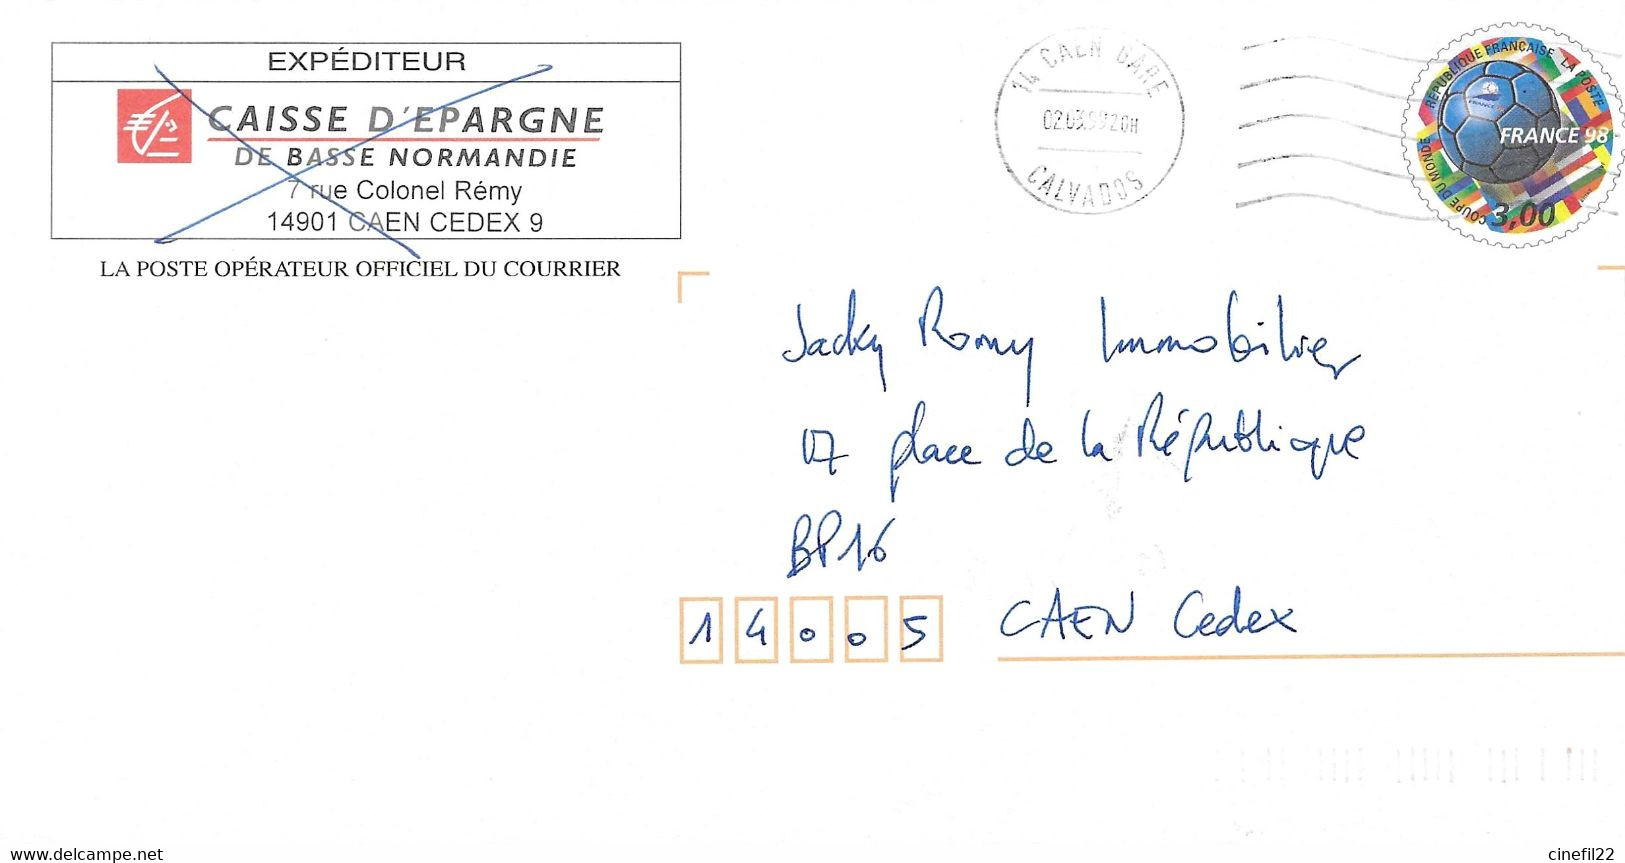 EXPÉDITEUR
CAISSE D'EPARGNE
DE BASSE NORMANDIE
7 rue Colonel Rémy
14901 CAEN CEDEX 9
LA POSTE OPÉRATEUR OFFICIEL DU COURRIER
14 CAEN GARE
02.03.99 20H
CALVADOS
COUPE DU MONDE RÉPUBLIQUE FRANÇAISE LA POSTE
FRANCE 98
3,00
Jacky Romy Immobilier
17 place de la République
BP16
14005 CAEN Cedex
www.delcampe.net
cinefil22